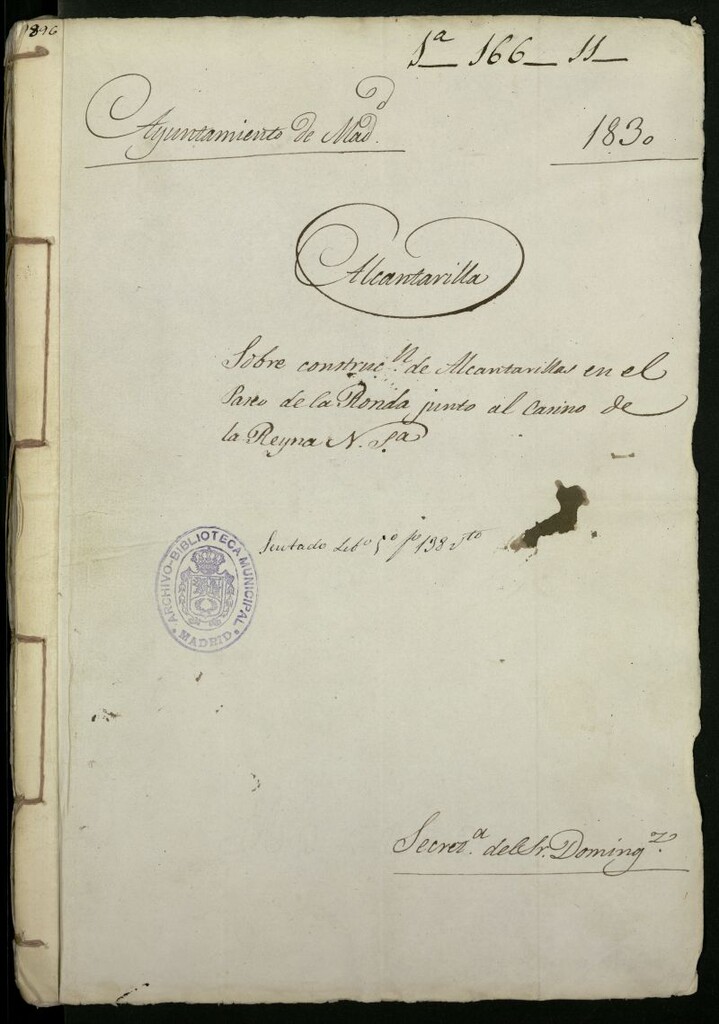 1896
1ª_166_11_
Ayuntamiento de Madᵈ.
1830
Alcantarilla
Sobre construcⁿ. de Alcantarillas en el
Paseo de la Ronda junto al Casino de
la Reyna N. Sª
Sentado Libº 5º fº 138 vto
ARCHIVO-BIBLIOTECA MUNICIPAL
* MADRID *
Secretª. del Sr. Domingᶻ.